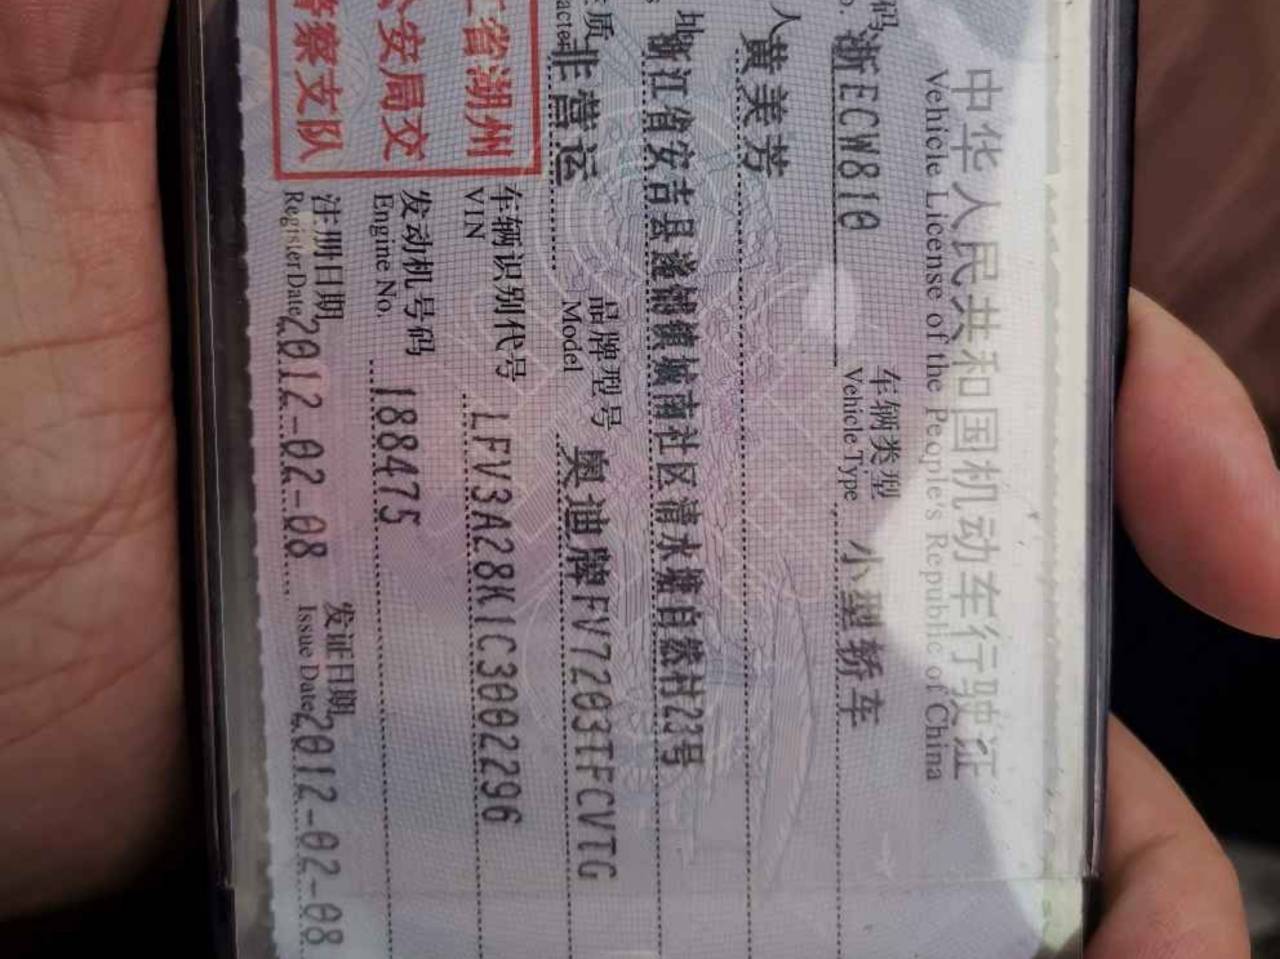 中华人民共和国机动车行驶证
Vehicle License of the People's Republic of China
码 浙ECW810 车辆类型 小型轿车
o. Vehicle Type
人 黄美芳
地 浙江省安吉县递铺镇城南社区清水塘自然村23号
质 非营运 品牌型号 奥迪牌FV7203TFCVTG
acter Model
江省湖州
公安局交
警察支队
车辆识别代号 LFV3A28K1C3002296
VIN
发动机号码 188475
Engine No.
注册日期 2012-02-08 发证日期 2012-02-08
Register Date Issue Date